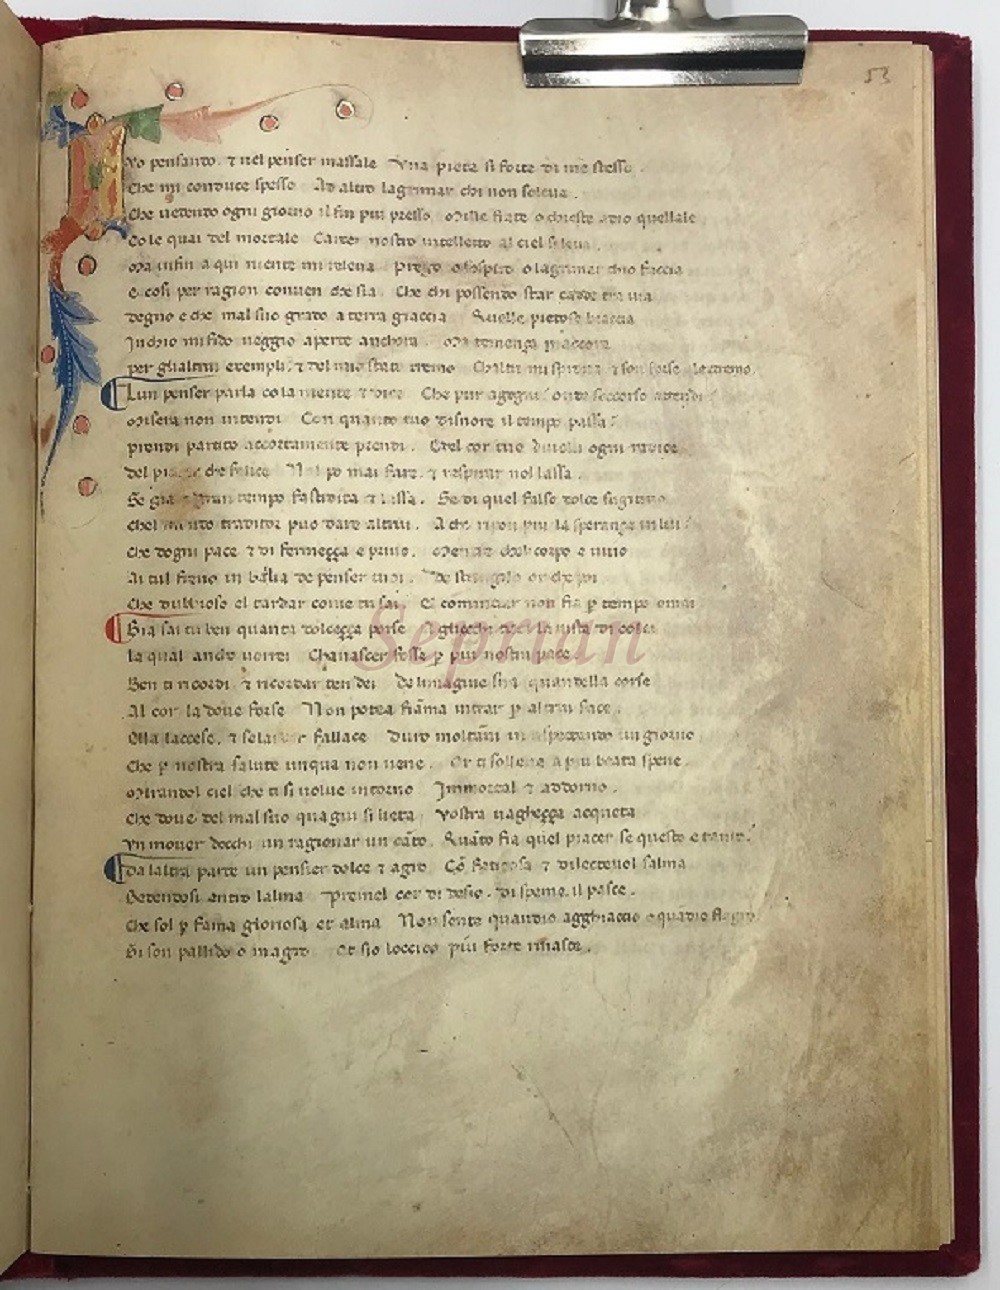 53
Vo pensando. ⁊ nel penser massale Una pieta si forte di me stesso.
Che mi conduce spesso Ad altro lagrimar chi non soleva.
Che vedendo ogni giorno il fin piu presso Mille fiate o chieste a dio quellale
Cole quai del mortale Carcer nostro intelletto al ciel si leva.
Ma infin a qui niente mi releva Prego o sospiro o lagrimar chio faccia
e cosi per ragion conven che sia Che chi possendo star cadde tra via
degno e che mal suo grado a terra giaccia Quelle pietose braccia
In chio mi fido veggio aperte anchora. Ma temenza maccora
per glialtrui exempli, ⁊ del mio stato tremo Chaltri mi sprona ⁊ son forse alextremo.
Lun penser parla cola mente ⁊ dice Che pur agogni? onde soccorso attendi?
Misera non intendi Con quanto tuo disnore il tempo passa?
prendi partito accortamente prendi. Edel cor tuo divelli ogni radice
del piacer che felice Nol po mai fare, ⁊ respirar nol lassa.
Se gia gran tempo fastidita ⁊ lassa. Se di quel falso dolce fugitivo
Chel mondo traditor puo dare altrui. A che ripon piu la speranza in lui?
Che dogni pace ⁊ di fermezza e privo. Mentre chel corpo e vivo
Ai tu il freno in balia de penser tuoi. De stringilo or che poi
Che dubbioso el tardar come tu sai. El cominciar non fia p tempo omai
Gia sai tu ben quanta dolcezza porse Agliocchi tuoi la vista di colei
La qual ancho vorrei Cha nascer fosse p piu nostra pace
Ben ti ricordi, ⁊ ricordar ten dei De limagine sua quandella corse
Al cor la dove forse Non potea fiãma intrar p altrui face.
Ella laccese, ⁊ se lardor fallace Duro moltãni in aspectando un giorno
Che p nostra salute unqua non vene. Or ti solleva a piu beata spene.
Mirandol ciel che ti si volve intorno Immortal ⁊ addorno.
Che dove del mal suo qua giu si lieta Vostra vaghezza acqueta
Un mover docchi un ragionar un cãto. Quãto fia quel piacer se questo e tanto?
Da laltra parte un pensier dolce ⁊ agro Cõ faticosa ⁊ dilectevol salma
Sedendosi entro lalma Premel cor di desio, di speme il pasce.
Che sol p fama gloriosa et alma Non sente quandio agghiaccio o quãdio flagro
Si son pallido o magro Et sio loccido piu forte rinasce.
Seprnan